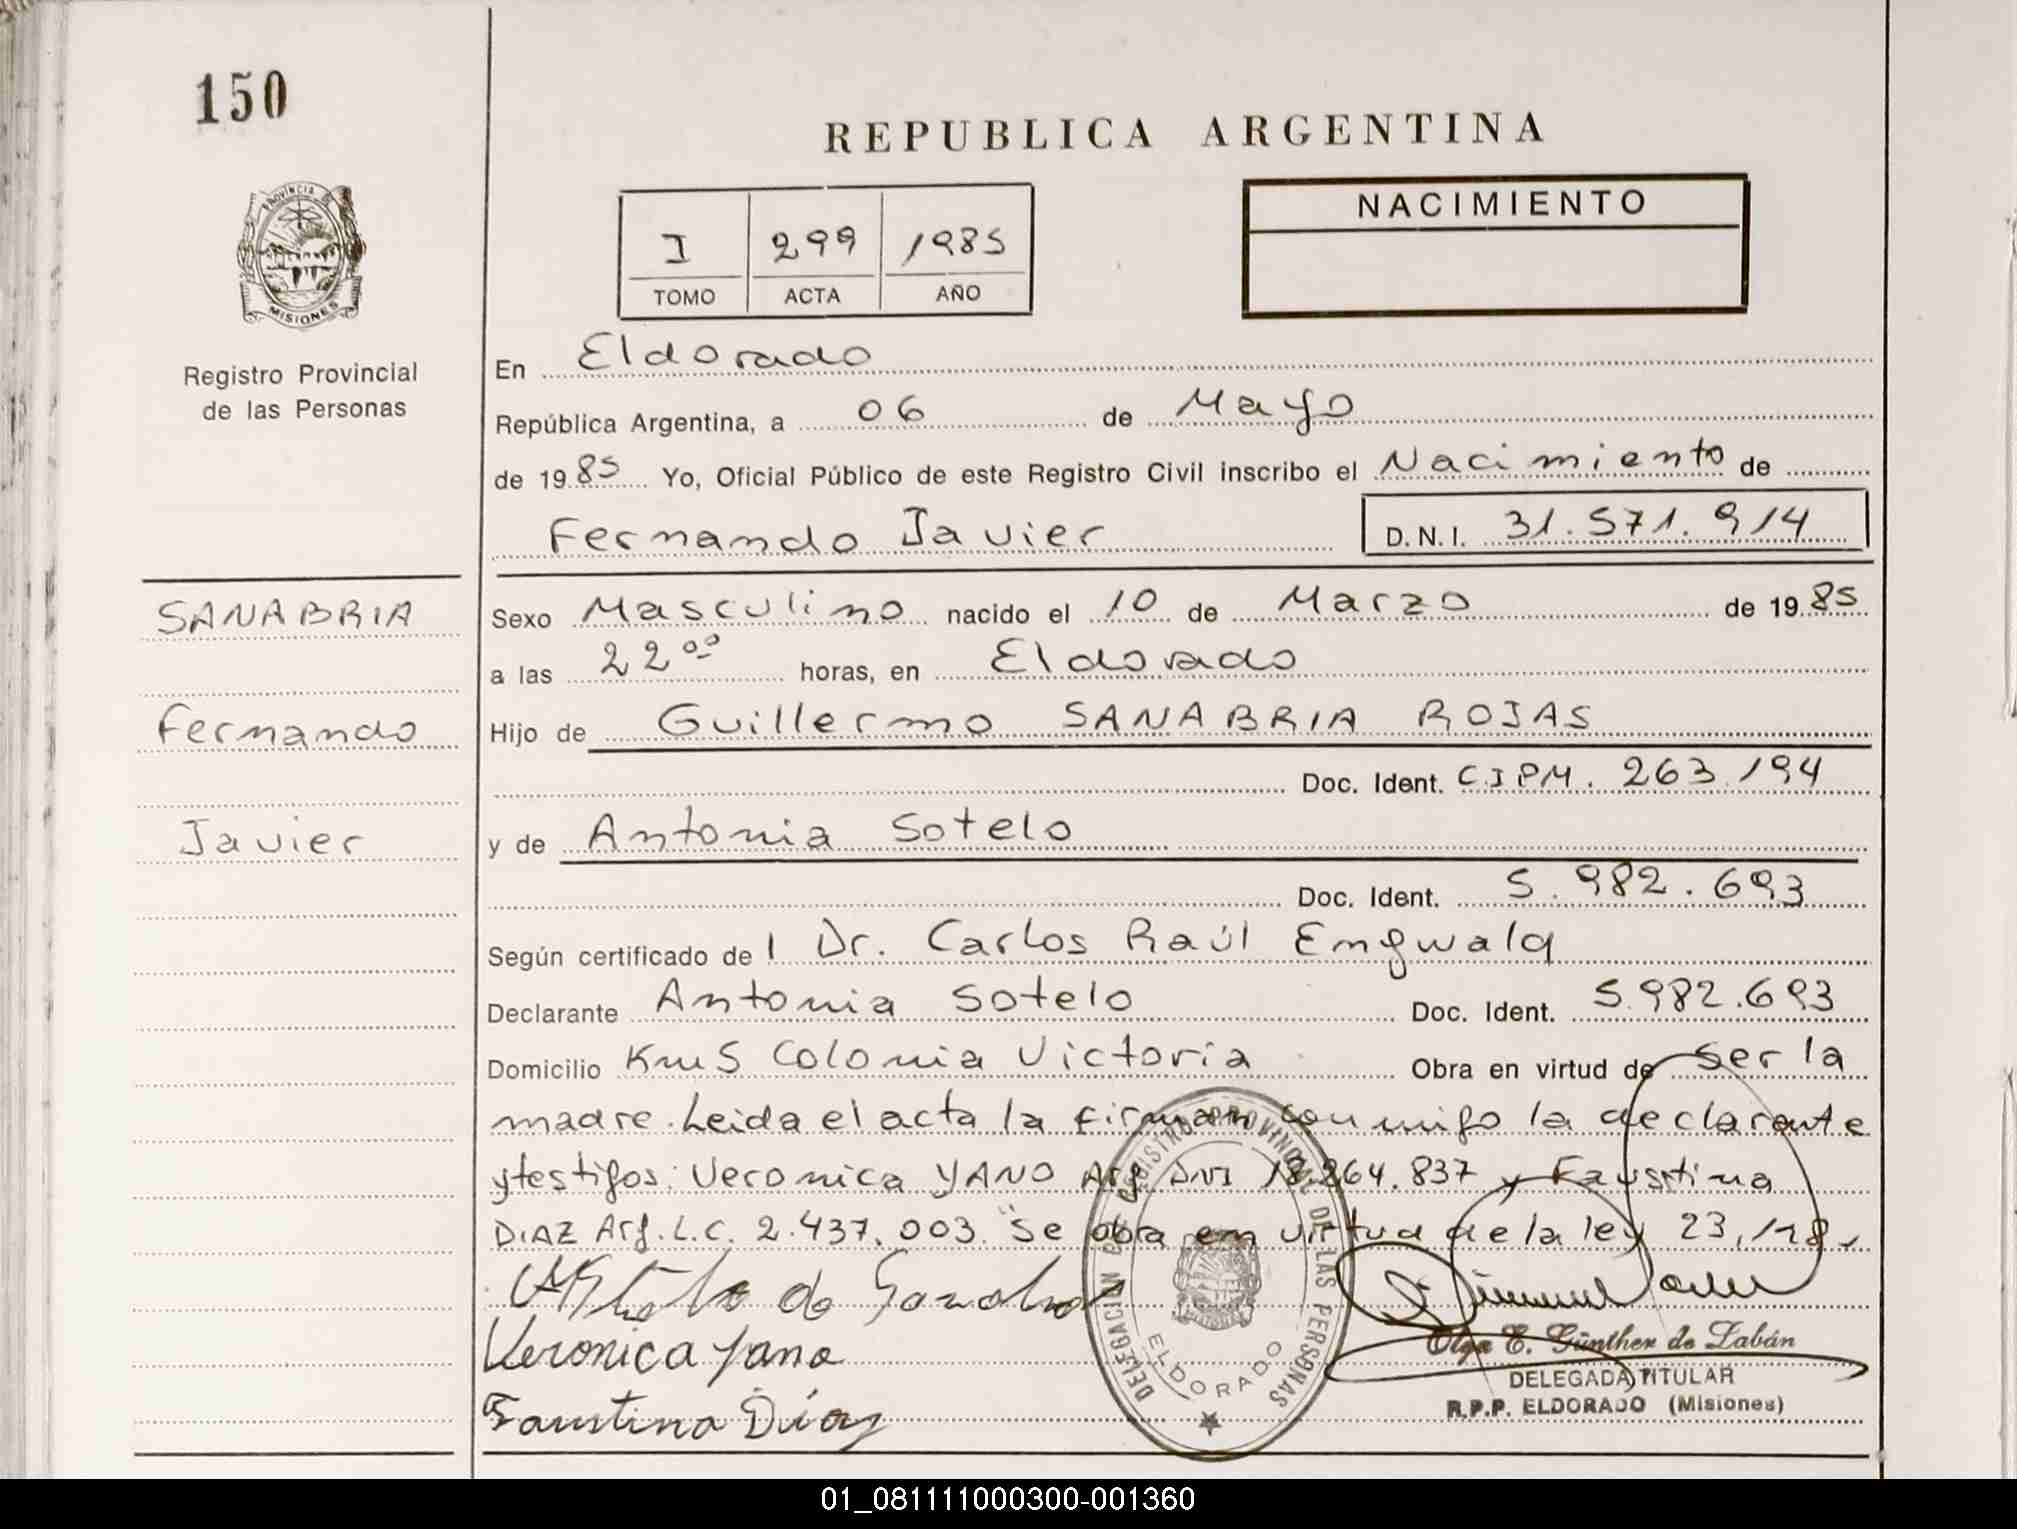 150
REPUBLICA ARGENTINA
PROVINCIA DE
MISIONES
I 299 1985
TOMO ACTA AÑO
NACIMIENTO
Registro Provincial
de las Personas
En Eldorado
República Argentina, a 06 de Mayo
de 1985 Yo, Oficial Público de este Registro Civil inscribo el Nacimiento de
Fernando Javier D.N.I. 31.571.914
SANABRIA
Fernando
Javier
Sexo Masculino nacido el 10 de Marzo de 1985
a las 22⁰⁰ horas, en Eldorado
Hijo de Guillermo SANABRIA ROJAS
Doc. Ident. C.I.P.M. 263.194
y de Antonia Sotelo
Doc. Ident. 5.982.693
Según certificado de l Dr. Carlos Raúl
Declarante Antonia Sotelo Doc. Ident. 5.982.693
Domicilio Km5 Colonia Victoria Obra en virtud de ser la
madre. Leida el acta la firman conmigo la declarante
y testigos: Veronica YANO Arg. DNI 18.264.837 y Faustina
DIAZ Arg. L.C. 2.437.003. "Se obra en virtud de la ley 23.128.
de
Veronica Yano
Faustina Díaz
DELEGACION DE REGISTRO PROVINCIAL DE LAS PERSONAS
ELDORADO
Olga E. Günther de Labán
DELEGADA TITULAR
R.P.P. ELDORADO (Misiones)
01_081111000300-001360